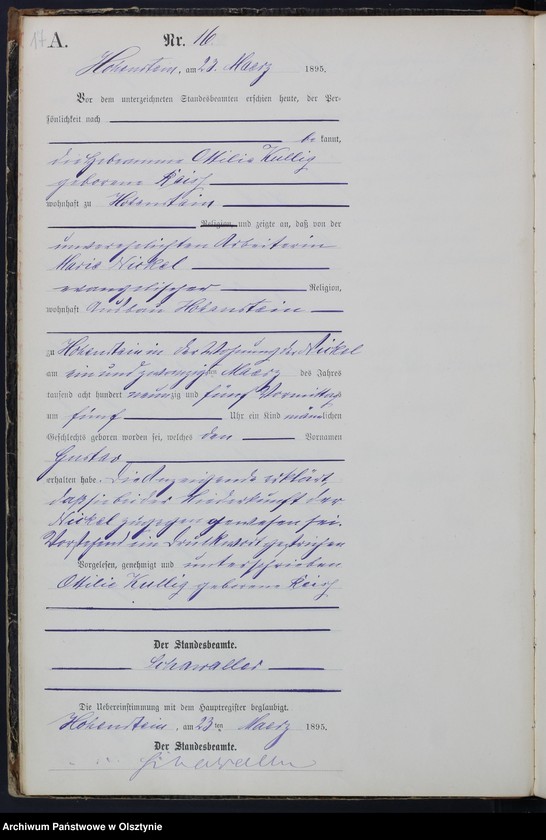 17.
A.
Nr. 16
Hohenstein, am 23. Maerz 1895.
Vor dem unterzeichneten Standesbeamten erschien heute, der Per-
sönlichkeit nach
be kannt,
die Hebamme Ottilie Kullig
geborene Reiß
wohnhaft zu Hohenstein
Religion, und zeigte an, daß von der
unverehelichten Arbeiterin
Marie Nickel
evangelischer Religion,
wohnhaft Ausbau Hohenstein
zu Hohenstein in der Wohnung der Nickel
am ein und zwanzigsten Maerz des Jahres
tausend acht hundert neunzig und fünf Vormittags
um fünf Uhr ein Kind männlichen
Geschlechts geboren worden sei, welches den Vornamen
Gustav
erhalten habe. Die Anzeigende erklärt,
daß sie bei der Niederkunft der
Nickel zugegen gewesen sei.
Vorstehend ein Druckwort gestrichen
Vorgelesen, genehmigt und unterschrieben
Ottilie Kullig geborene Reiß
Der Standesbeamte.
Schawaller
Die Uebereinstimmung mit dem Hauptregister beglaubigt.
Hohenstein, am 23ten Maerz 1895.
Der Standesbeamte.
Schawaller
Archiwum Państwowe w Olsztynie